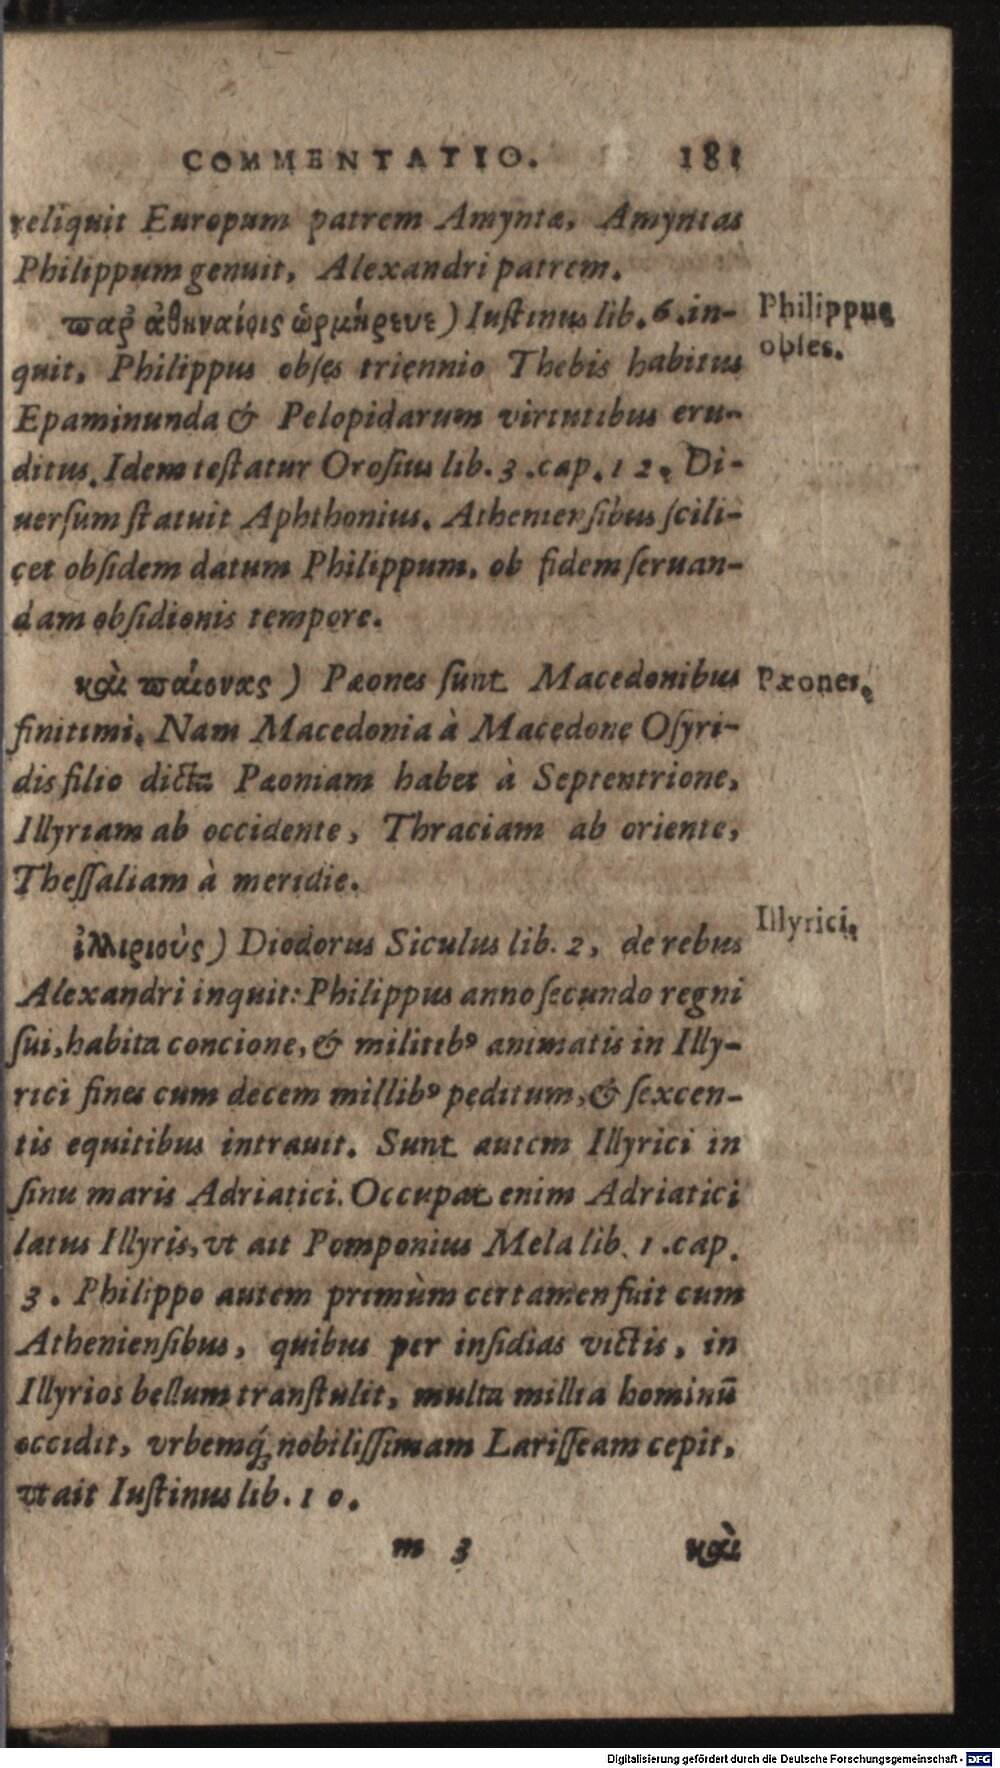 COMMENTATIO. 181
reliquit Europum patrem Amyntæ, Amyntas
Philippum genuit, Alexandri patrem.
παρ' ἀθηναίοις ὡμήρευε) Iustinus lib. 6. in-
quit, Philippus obses triennio Thebis habitus
Epaminunda & Pelopidarum virtutibus eru-
ditus. Idem testatur Orosius lib. 3. cap. 12. Di-
uersum statuit Aphthonius. Atheniensibus scili-
cet obsidem datum Philippum, ob fidem seruan-
dam obsidionis tempore.
Philippus
obses.
καὶ παίονας) Pæones sunt Macedonibus
finitimi. Nam Macedonia à Macedone Osyri-
dis filio dicta Pæoniam habet à Septentrione,
Illyriam ab occidente, Thraciam ab oriente,
Thessaliam à meridie.
Pæones.
ἰλλιριοὺς) Diodorus Siculus lib. 2, de rebus
Alexandri inquit: Philippus anno secundo regni
sui, habita concione, & militibꝰ animatis in Illy-
rici fines cum decem millibꝰ peditum, & sexcen-
tis equitibus intrauit. Sunt autem Illyrici in
sinu maris Adriatici. Occupat enim Adriatici
latus Illyris, vt ait Pomponius Mela lib. 1. cap.
3. Philippo autem primùm certamen fuit cum
Atheniensibus, quibus per insidias victis, in
Illyrios bellum transtulit, multa millia hominū
occidit, vrbemq́; nobilissimam Larisseam cepit,
vt ait Iustinus lib. 10.
Illyrici.
m 3 καὶ
Digitalisierung gefördert durch die Deutsche Forschungsgemeinschaft - DFG